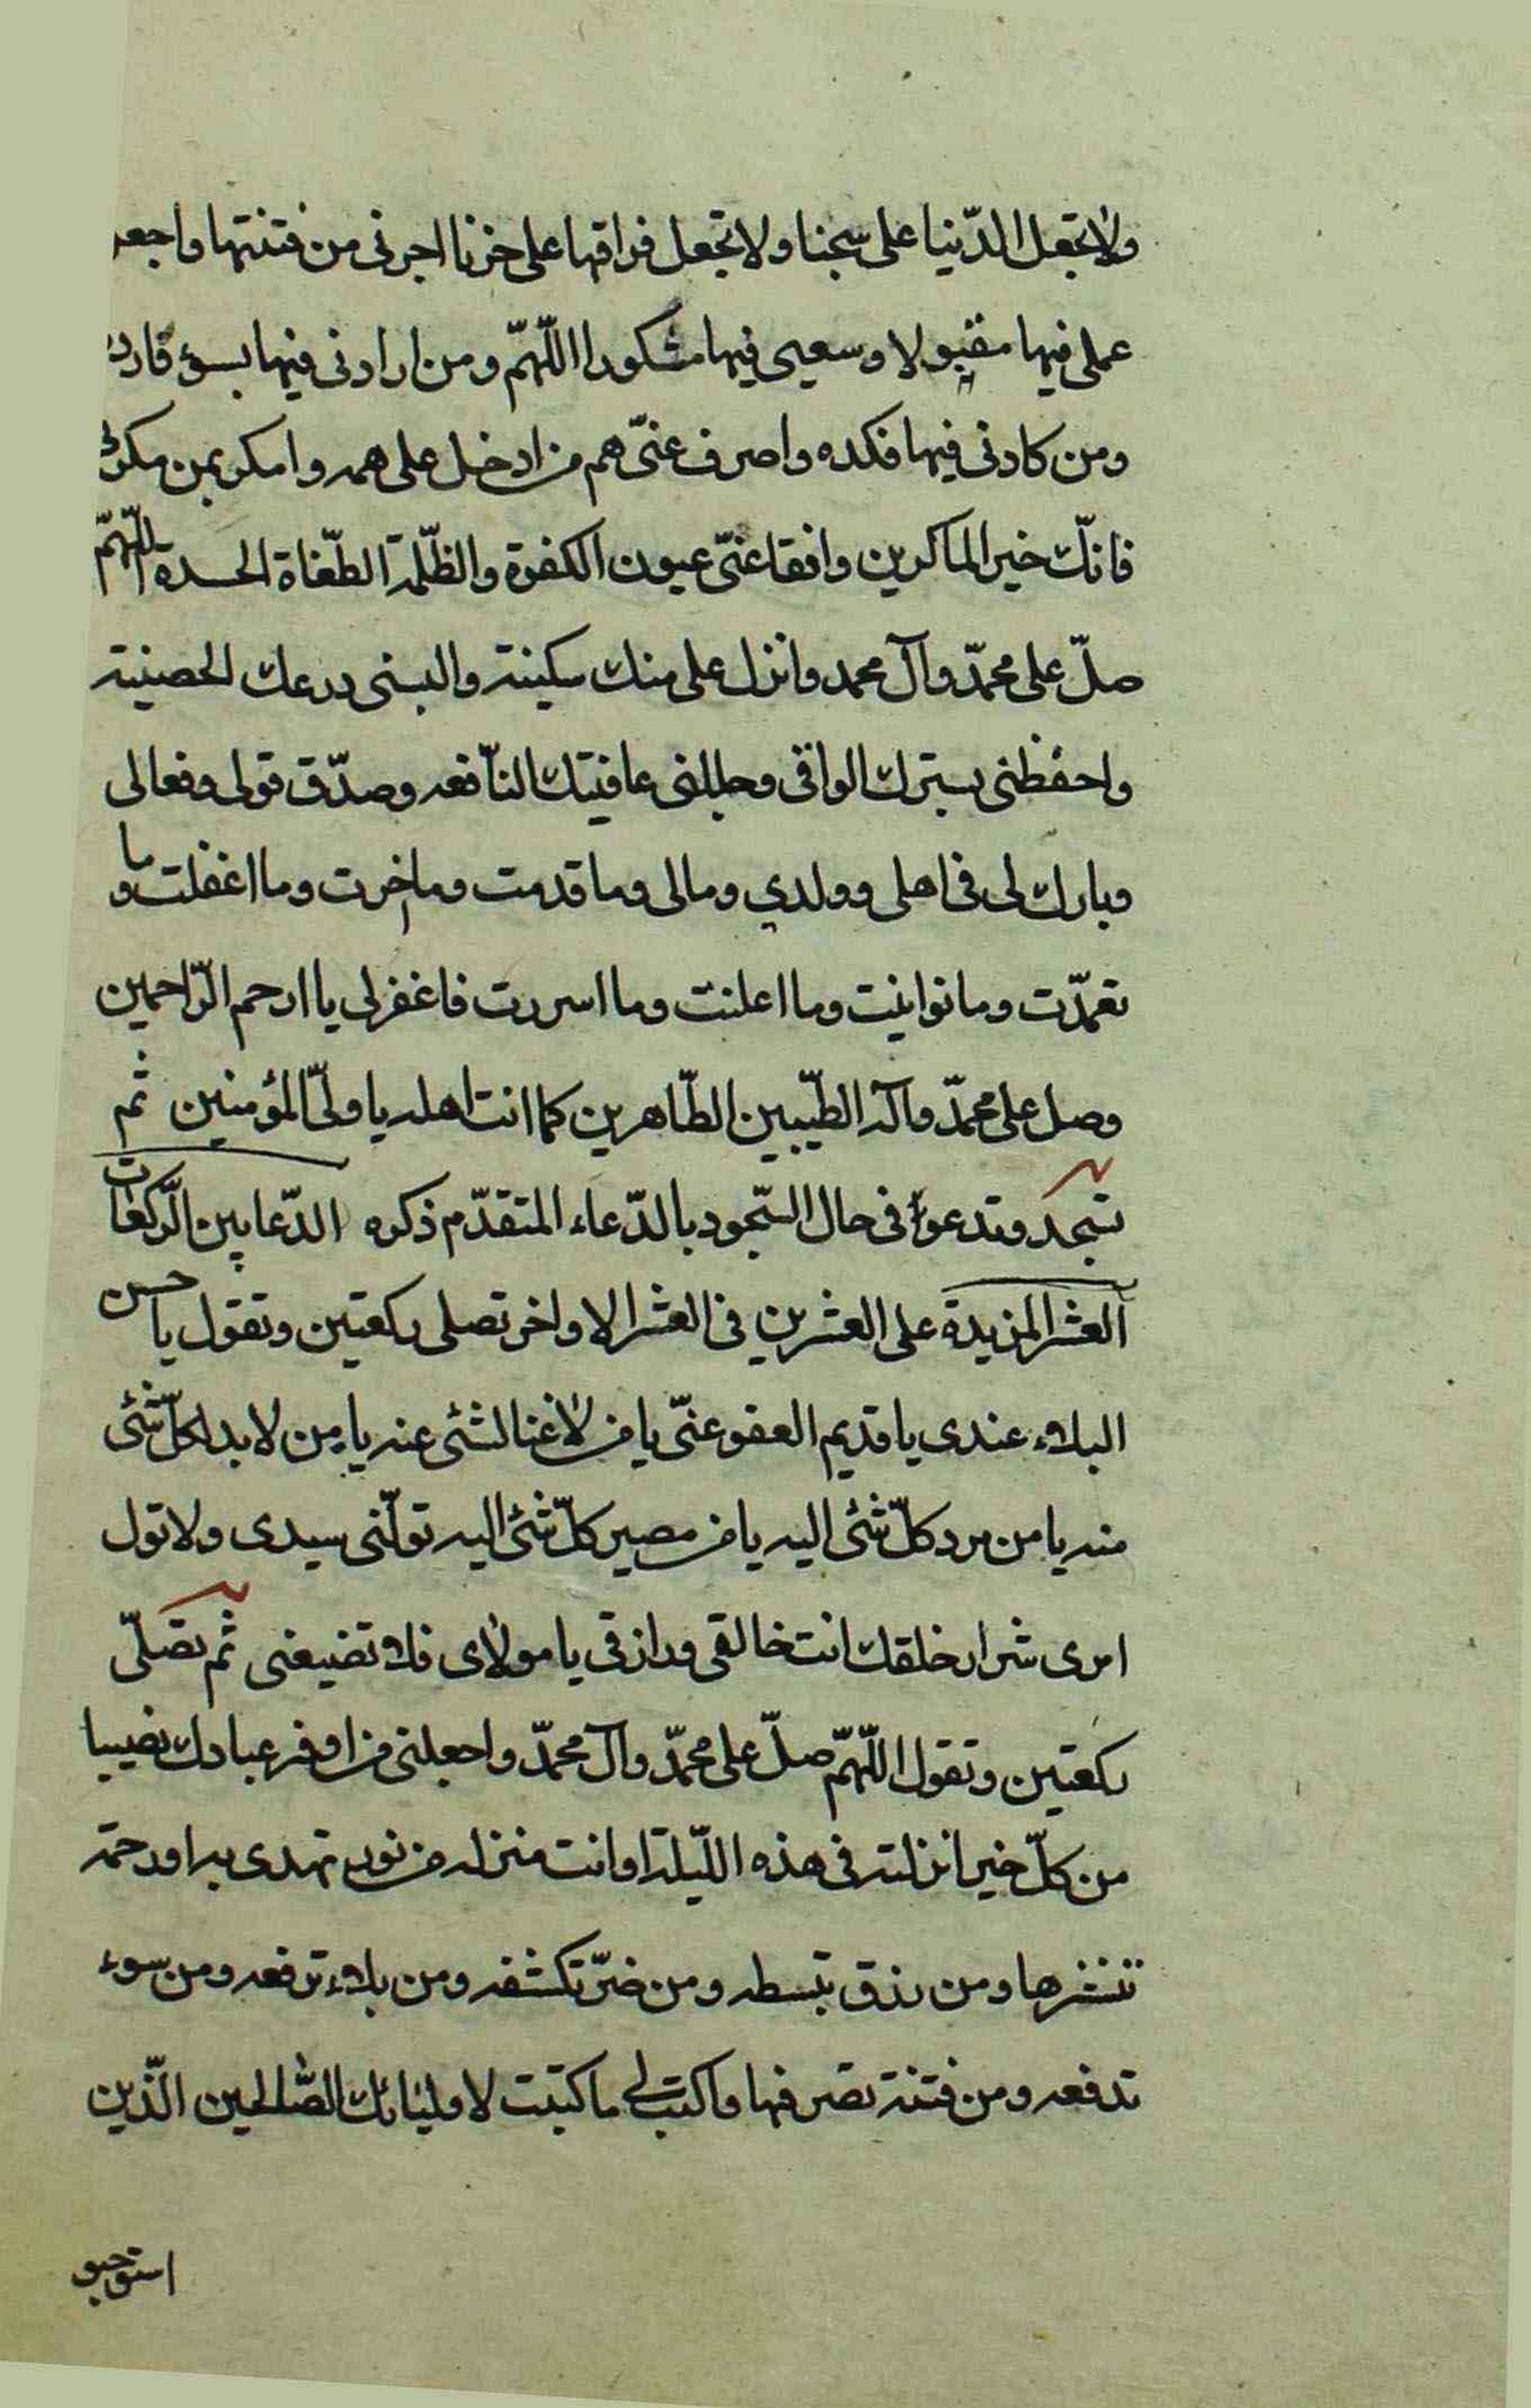 ولا تجعل الدّنيا على سجنا ولا تجعل فراقها على حزنا اجرنى من فتنتها واجعل
عملى فيها مقبولا وسعيى فيها مشكورا اللّهمّ ومن ارادنى فيها بسوء فارده
ومن كادنى فيها فكده واصرف عنّى هم من ادخل على همه وامكر بمن مكر بى
فانّك خير الماكرين وافقا عنّى عيون الكفرة والظّلمة الطّغاة الحسدة اللّهمّ
صلّ على محمّد وآل محمد وانزل على منك سكينة والبسنى درعك الحصينة
واحفظنى بسترك الواقى وجللنى عافيتك النّافعه وصدّق قولى وفعالى
وبارك لى فى اهلى وولدي ومالى وما قدمت وما اخرت وما اغفلت وما
تعمدّت وما توانيت وما اعلنت وما اسررت فاغفر لى يا ارحم الرّاحمين
وصل على محمّد وآله الطيّبين الطّاهرين كما انت اهله يا ولىّ المؤمنين ثم
تسجد وتدعوا فى حال السّجود بالدّعاء المتقدّم ذكره الدّعا بين الرّكعات
العشر المزيدة على العشرين فى العشر الاواخر تصلى ركعتين وتقول يا حسن
البلاء عندى يا قديم العفو عنّى يا من لا غنا لشئى عنه يا من لا بد لكلّ شئى
منه يا من مرد كلّ شئى اليه يا من مصير كلّ شئى اليه تولّنى سيدى ولا تول
امرى شرار خلقك انت خالقى ورازقى يا مولاى فلا تضيعنى ثم تصلّى
ركعتين وتقول اللّهمّ صلّ على محمّد وآل محمّد واجعلنى من اوفر عبادك نصيبا
من كلّ خير انزلته فى هذه اللّيلة او انت منزله من نور تهدى به او رحمة
تنشرها ومن رزق تبسطه ومن ضرّ تكشفه ومن بلاء ترفعه ومن سوء
تدفعه ومن فتنة تصرفها واكتب لى ما كتبت لاوليائك الصّالحين الّذين
استوجبو